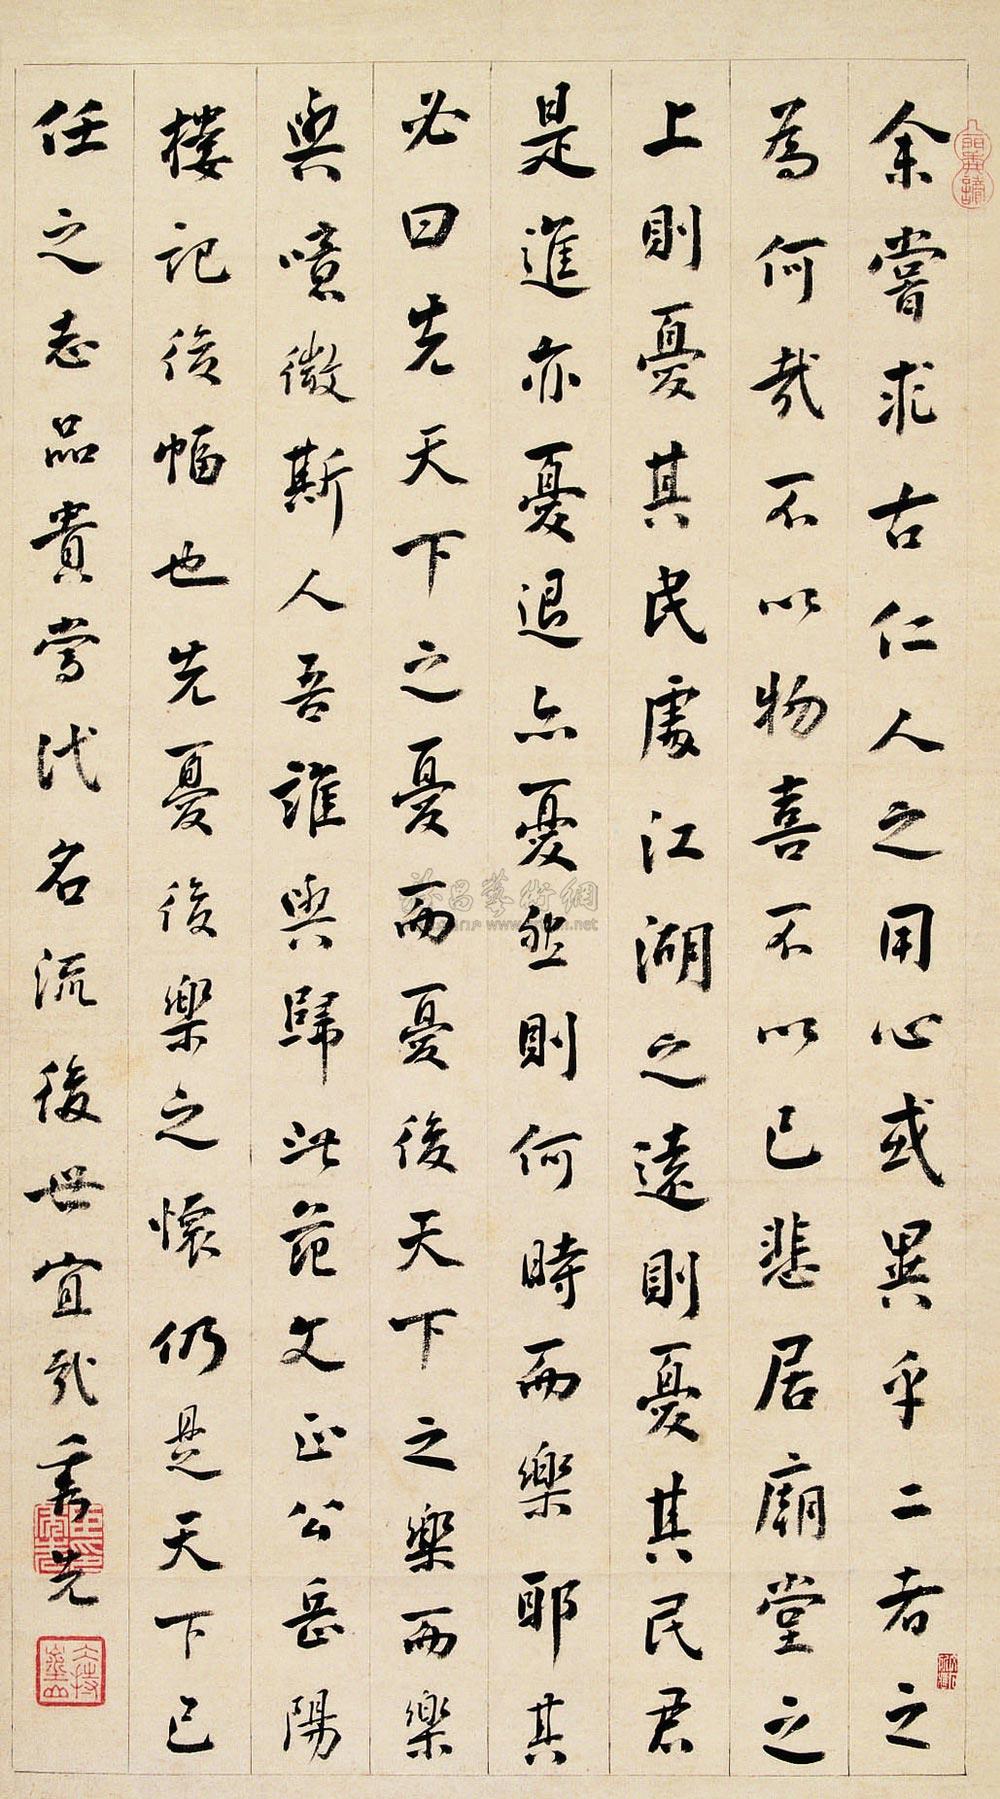 余嘗求古仁人之用心或異乎二者之
為何哉不以物喜不以己悲居廟堂之
上則憂其民處江湖之遠則憂其民君
是進亦憂退亦憂然則何時而樂耶其
必曰先天下之憂而憂後天下之樂而樂
與噫微斯人吾誰與歸此范文正公岳陽
樓記後幅也先憂後樂之懷仍是天下己
任之志品貴當代名流後世宜哉 先